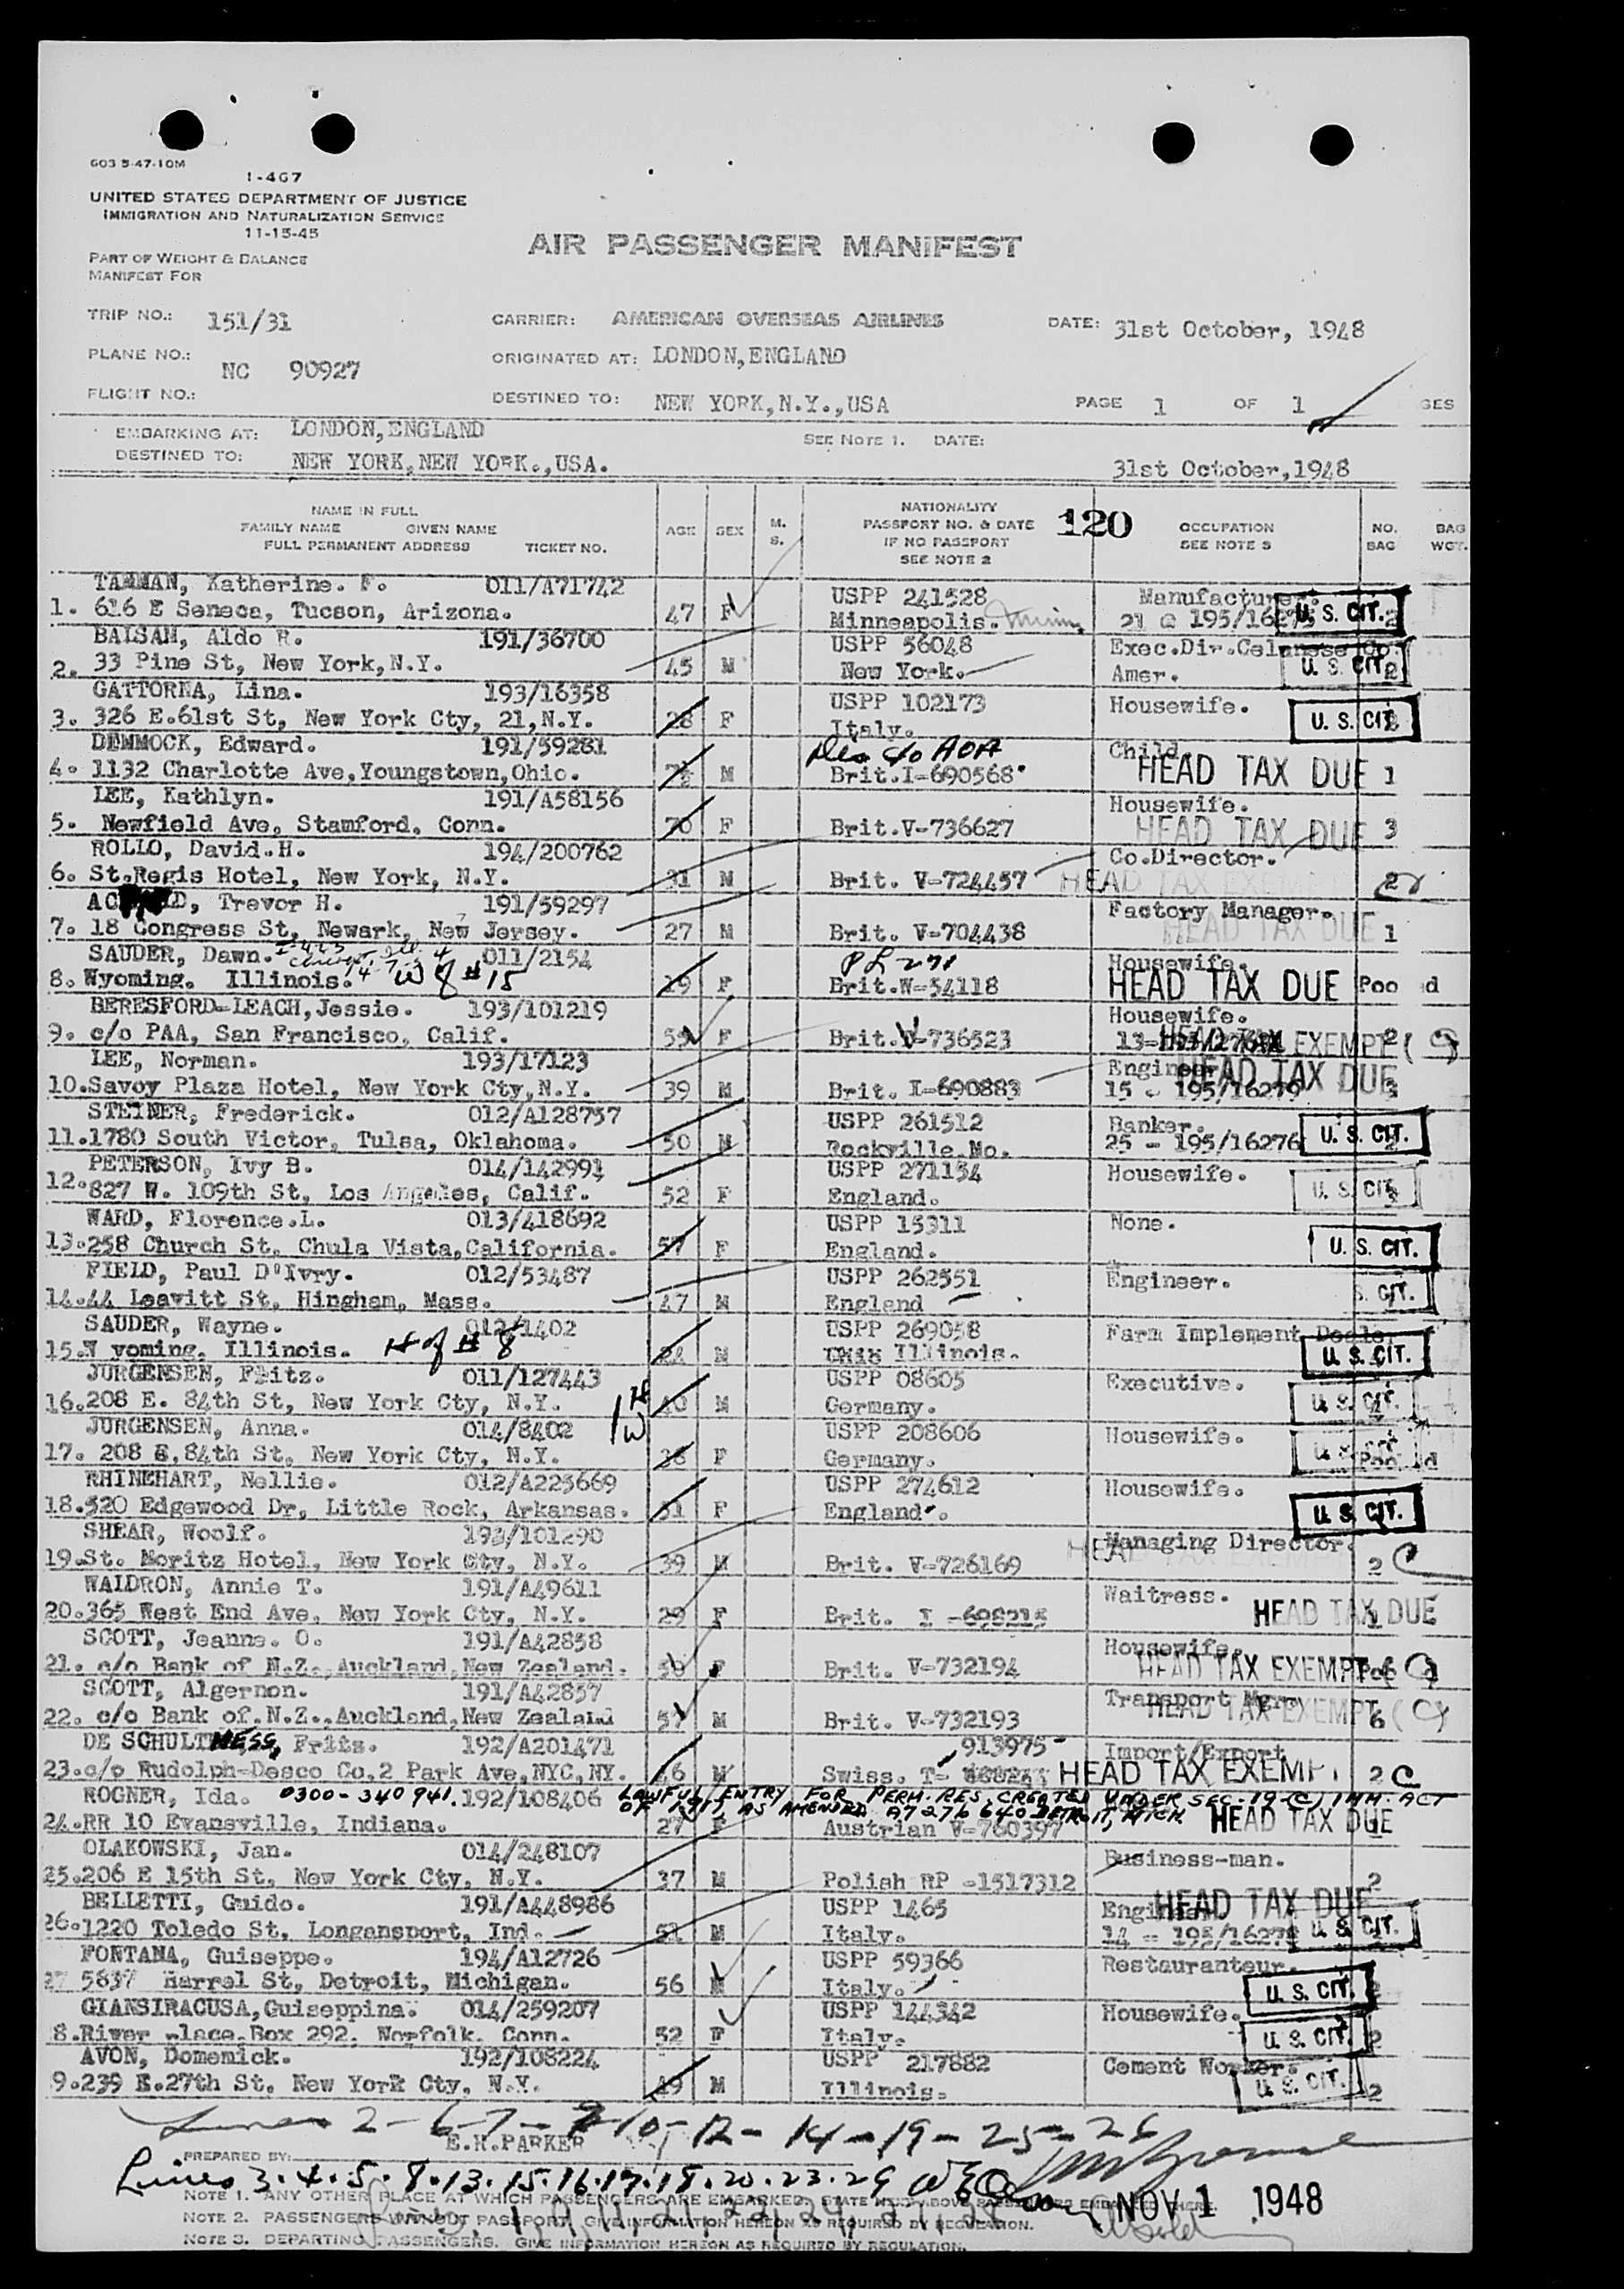 603 5-47-10M
I-467
UNITED STATES DEPARTMENT OF JUSTICE
IMMIGRATION AND NATURALIZATION SERVICE
11-15-45
PART OF WEIGHT & BALANCE
MANIFEST FOR
AIR PASSENGER MANIFEST
TRIP NO.: 151/31 CARRIER: AMERICAN OVERSEAS AIRLINES DATE: 31st October, 1948
PLANE NO.: NC 90927 ORIGINATED AT: LONDON,ENGLAND
FLIGHT NO.: DESTINED TO: NEW YORK,N.Y.,USA PAGE 1 OF 1 GES
EMBARKING AT: LONDON,ENGLAND SEE NOTE 1. DATE:
DESTINED TO: NEW YORK,NEW YORK.,USA. 31st October,1948
NAME IN FULL NATIONALITY
FAMILY NAME GIVEN NAME AGE SEX M. S. PASSPORT NO. & DATE 120 OCCUPATION NO. BAG
FULL PERMANENT ADDRESS TICKET NO. IF NO PASSPORT SEE NOTE 3 BAG WGT.
SEE NOTE 2
TAMMAN, Katherine. F. 011/A71742 USPP 241528 Manufacturer.
1. 616 E Seneca, Tucson, Arizona. 47 F Minneapolis. 21 @ 195/1627 U. S. CIT. 2
BALSAM, Aldo R. 191/36700 USPP 56048 Exec.Dir.Celanese Co.
2. 33 Pine St, New York,N.Y. 45 M New York. Amer. U. S. CIT. 2
GATTORNA, Lina. 193/16358 USPP 102173 Housewife.
3. 326 E.61st St, New York Cty, 21,N.Y. 28 F Italy. U. S. CIT.
DEMMOCK, Edward. 191/59281 c/o AOA Child.
4. 1132 Charlotte Ave,Youngstown,Ohio. M Brit.I-690568 HEAD TAX DUE 1
LEE, Kathlyn. 191/A58156 Housewife.
5. Newfield Ave, Stamford, Conn. 70 F Brit.V-736627 HEAD TAX DUE 3
ROLLO, David.H. 194/200762 Co.Director.
6. St.Regis Hotel, New York, N.Y. 31 M Brit. V-724457 HEAD TAX EXEMPT 2
AC D, Trevor H. 191/59297 Factory Manager.
7. 18 Congress St, Newark, New Jersey. 27 M Brit. V-704438 HEAD TAX DUE 1
SAUDER, Dawn. 011/2154 PL 271 Housewife.
8. Wyoming. Illinois. W of #15 19 F Brit.W-54118 HEAD TAX DUE Poo d
BERESFORD-LEACH,Jessie. 193/101219 Housewife.
9. c/o PAA, San Francisco, Calif. 55 F Brit.V-736523 HEAD TAX EXEMPT 2
LEE, Norman. 193/17123 Engineer
10.Savoy Plaza Hotel, New York Cty,N.Y. 39 M Brit. I-690883 15 - 195/16279 HEAD TAX DUE 3
STEINER, Frederick. 012/A128757 USPP 261512 Banker.
11.1780 South Victor, Tulsa, Oklahoma. 50 M Rockville.Mo. 25 - 195/16276 U. S. CIT. 2
PETERSON, Ivy B. 014/142991 USPP 271154 Housewife.
12.827 W. 109th St, Los Angeles, Calif. 52 F England. U. S. CIT.
WARD, Florence.L. 013/418692 USPP 15311 None.
13.258 Church St, Chula Vista,California. 57 F England. U. S. CIT.
FIELD, Paul D'Ivry. 012/53487 USPP 262551 Engineer.
14.44 Leavitt St, Hingham, Mass. 47 M England S. CIT.
SAUDER, Wayne. 012/1402 USPP 269058 Farm Implement Dealer
15.W yoming. Illinois. H of # 8 24 M Illinois. U. S. CIT.
JURGENSEN, Fritz. 011/127443 USPP 08605 Executive.
16.208 E. 84th St, New York Cty, N.Y. H 40 M Germany. U. S. CIT.
JURGENSEN, Anna. 014/8402 W USPP 208606 Housewife.
17. 208 E,84th St, New York Cty, N.Y. 38 F Germany. U. S. CIT. Poo d
RHINEHART, Nellie. 012/A225669 USPP 274612 Housewife.
18.520 Edgewood Dr, Little Rock, Arkansas. 31 F England. U. S. CIT.
SHEAR, Woolf. 193/101290 Managing Director.
19.St. Moritz Hotel, New York City, N.Y. 39 M Brit. V-726169 HEAD 2
WALDRON, Annie T. 191/A49611 Waitress.
20.365 West End Ave, New York Cty, N.Y. 29 F Brit. I -698215 HEAD TAX DUE 1
SCOTT, Jeanne. O. 191/A42858 Housewife.
21. c/o Bank of N.Z.,Auckland,New Zealand. F Brit. V-732194 HEAD TAX EXEMPT
SCOTT, Algernon. 191/A42857 Transport Mgr.
22. c/o Bank of.N.Z.,Auckland,New Zealand 57 M Brit. V-732193 HEAD TAX EXEMPT 6
DE SCHULTHESS, Fritz. 192/A201471 913975 Import/Export
23.c/o Rudolph-Desco Co,2 Park Ave,NYC,NY. 46 M Swiss. T- HEAD TAX EXEMPT 2 C
ROGNER, Ida. 0300-340941. 192/108406 LAWFUL ENTRY FOR PERM. RES. CREATED UNDER SEC. 19(C) IMM. ACT
OF 1917, AS AMENDED A7276640 DETROIT, MICH.
24.RR 10 Evansville, Indiana. 27 F Austrian V-760397 HEAD TAX DUE
OLAKOWSKI, Jan. 014/248107 Business-man.
25.206 E 15th St, New York Cty, N.Y. 37 M Polish RP -1517312 2
HEAD TAX DUE
BELLETTI, Guido. 191/A448986 USPP 1465 Engineer.
26.1220 Toledo St, Longansport, Ind. 51 M Italy. 14 - 195/1627 U. S. CIT.
FONTANA, Guiseppe. 194/A12726 USPP 59366 Restauranteur.
27 5837 Harrel St, Detroit, Michigan. 56 M Italy. U. S. CIT. 2
GIANSIRACUSA,Guiseppina. 014/259207 USPP 144342 Housewife.
8.River place.Box 292. Norfolk. Conn. 52 F Italy. U. S. CIT. 2
AVON, Domenick. 192/108224 USPP 217882 Cement Worker.
9.239 E.27th St. New York Cty, N.Y. 49 M Illinois. U. S. CIT. 2
Lines 2-6-7-10-12-14-19-25-26
E.H.PARKER
PREPARED BY:
Lines 3.4.5.8.13.15.16.17.18.20.23.29
NOTE 1. ANY OTHER PLACE AT WHICH PASSENGERS ARE EMBARKED, STATE NEXT ABOVE PASSENGERS EMBARKED THERE.
NOV 1 1948
NOTE 2. PASSENGERS WITHOUT PASSPORT, GIVE INFORMATION HEREON AS REQUIRED BY REGULATION.
NOTE 3. DEPARTING PASSENGERS. GIVE INFORMATION HEREON AS REQUIRED BY REGULATION.